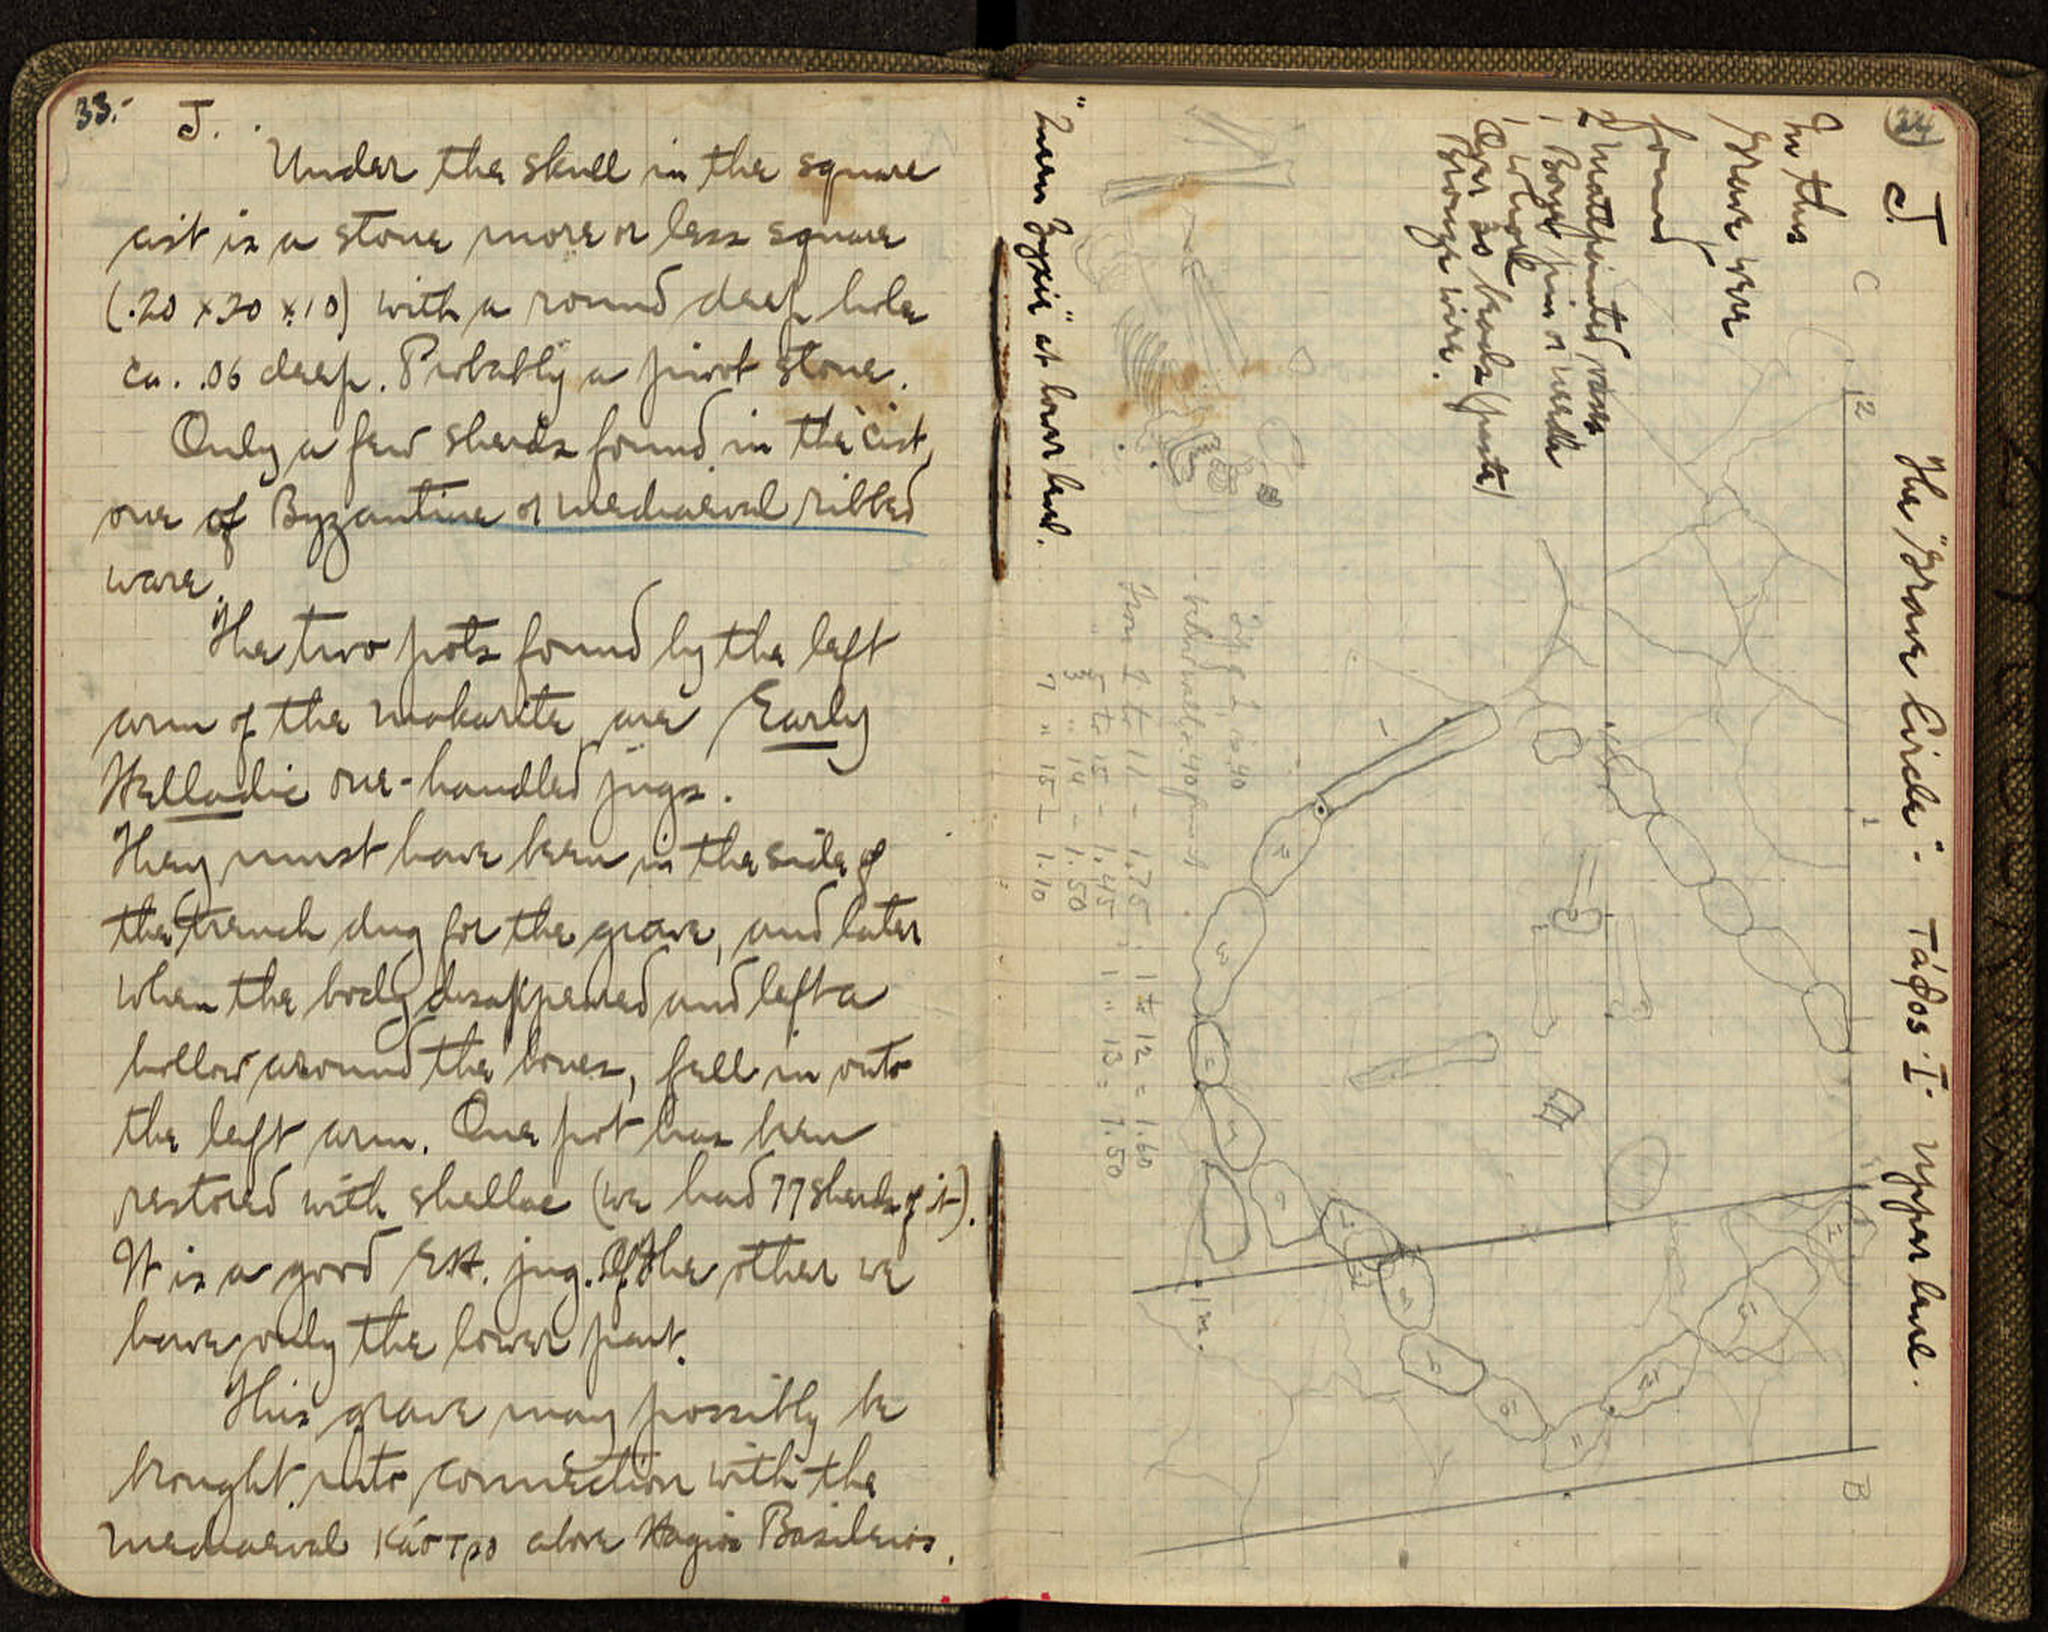 33.-
J.
Under the skull in the square
cist is a stone more or less square
(.20 x 20 x .10) with a round deep hole
ca. .06 deep. Probably a pivot stone.
Only a few sherds found in the cist,
one of Byzantine or mediaeval ribbed
ware.
The two pots found by the left
arm of the makarite are Early
Helladic one-handled jugs.
They must have been in the side of
the trench dug for the grave, and later
when the body disappeared and left a
hollow around the bones, fell in onto
the left arm. One pot has been
restored with shellac (we had 77 sherds of it).
It is a good E.H. jug. Of the other we
have only the lower part.
This grave may possibly be
brought into connection with the
mediaeval Κάστρο above Hagios Basileios.
34
J.
The "Grave Circle".- Τάφος I. Upper level.
In this
grave were
found
2 mattpainted vases
1 Bone pin or needle
1 whorl
Over 20 beads (paste)
Bronze wire.
C
2
1
B
1 m.
" at lower level.
From
to 11 - 1.75. 1 to 12 = 1.60
5 to 15 - 1.45. 1 " 13 = 1.50
3 " 14 - 1.50
7 " 15 - 1.10